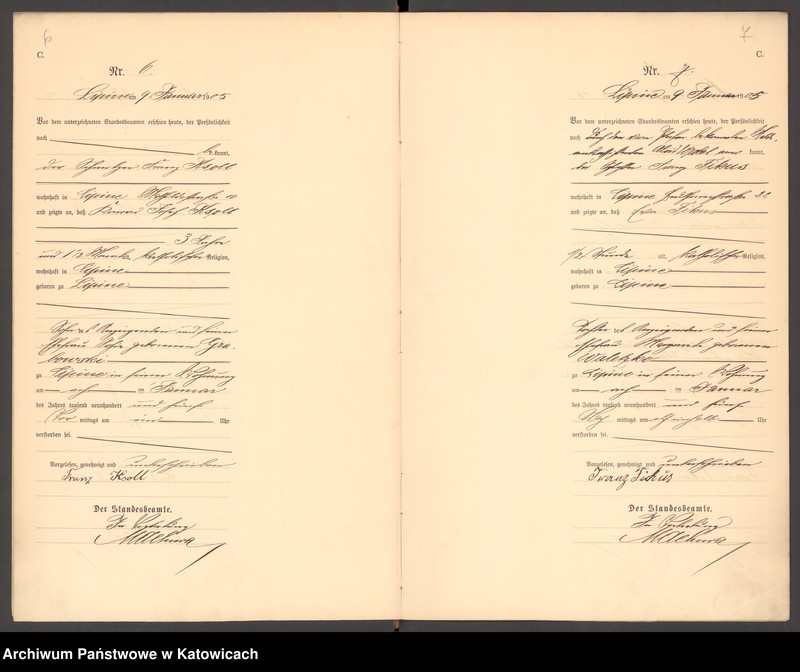 6
C.
Nr. 6.
Lipine am 9. Januar 1905
Vor dem unterzeichneten Standesbeamten erschien heute, der Persönlichkeit
nach
be kannt,
der Franz Ksoll
wohnhaft in Lipine
und zeigte an, daß Josef Ksoll
3 Jahre
und 1 1/2 Monate alt, katholischer Religion,
wohnhaft in Lipine
geboren zu Lipine
Sohn des Anzeigenden und seiner
Ehefrau geborenen Gra-
bowski
zu Lipine in seiner Wohnung
am acht en Januar
des Jahres tausend neunhundert und fünf
Vor mittags um ein Uhr
verstorben sei.
Vorgelesen, genehmigt und unterschrieben
Franz Ksoll
Der Standesbeamte.
In Vertretung
7
C.
Nr. 7.
Lipine am 9. Januar 1905
Vor dem unterzeichneten Standesbeamten erschien heute, der Persönlichkeit
nach durch den
kannt,
der Franz Fikus
wohnhaft in Lipine 22
und zeigte an, daß Fikus
1/2 Stunde alt, katholischer Religion,
wohnhaft in Lipine
geboren zu Lipine
Tochter des Anzeigenden und seiner
Ehefrau geborenen
zu Lipine in seiner Wohnung
am acht en Januar
des Jahres tausend neunhundert und fünf
Nach mittags um Uhr
verstorben sei.
Vorgelesen, genehmigt und unterschrieben
Franz Fikus
Der Standesbeamte.
In Vertretung
Archiwum Państwowe w Katowicach